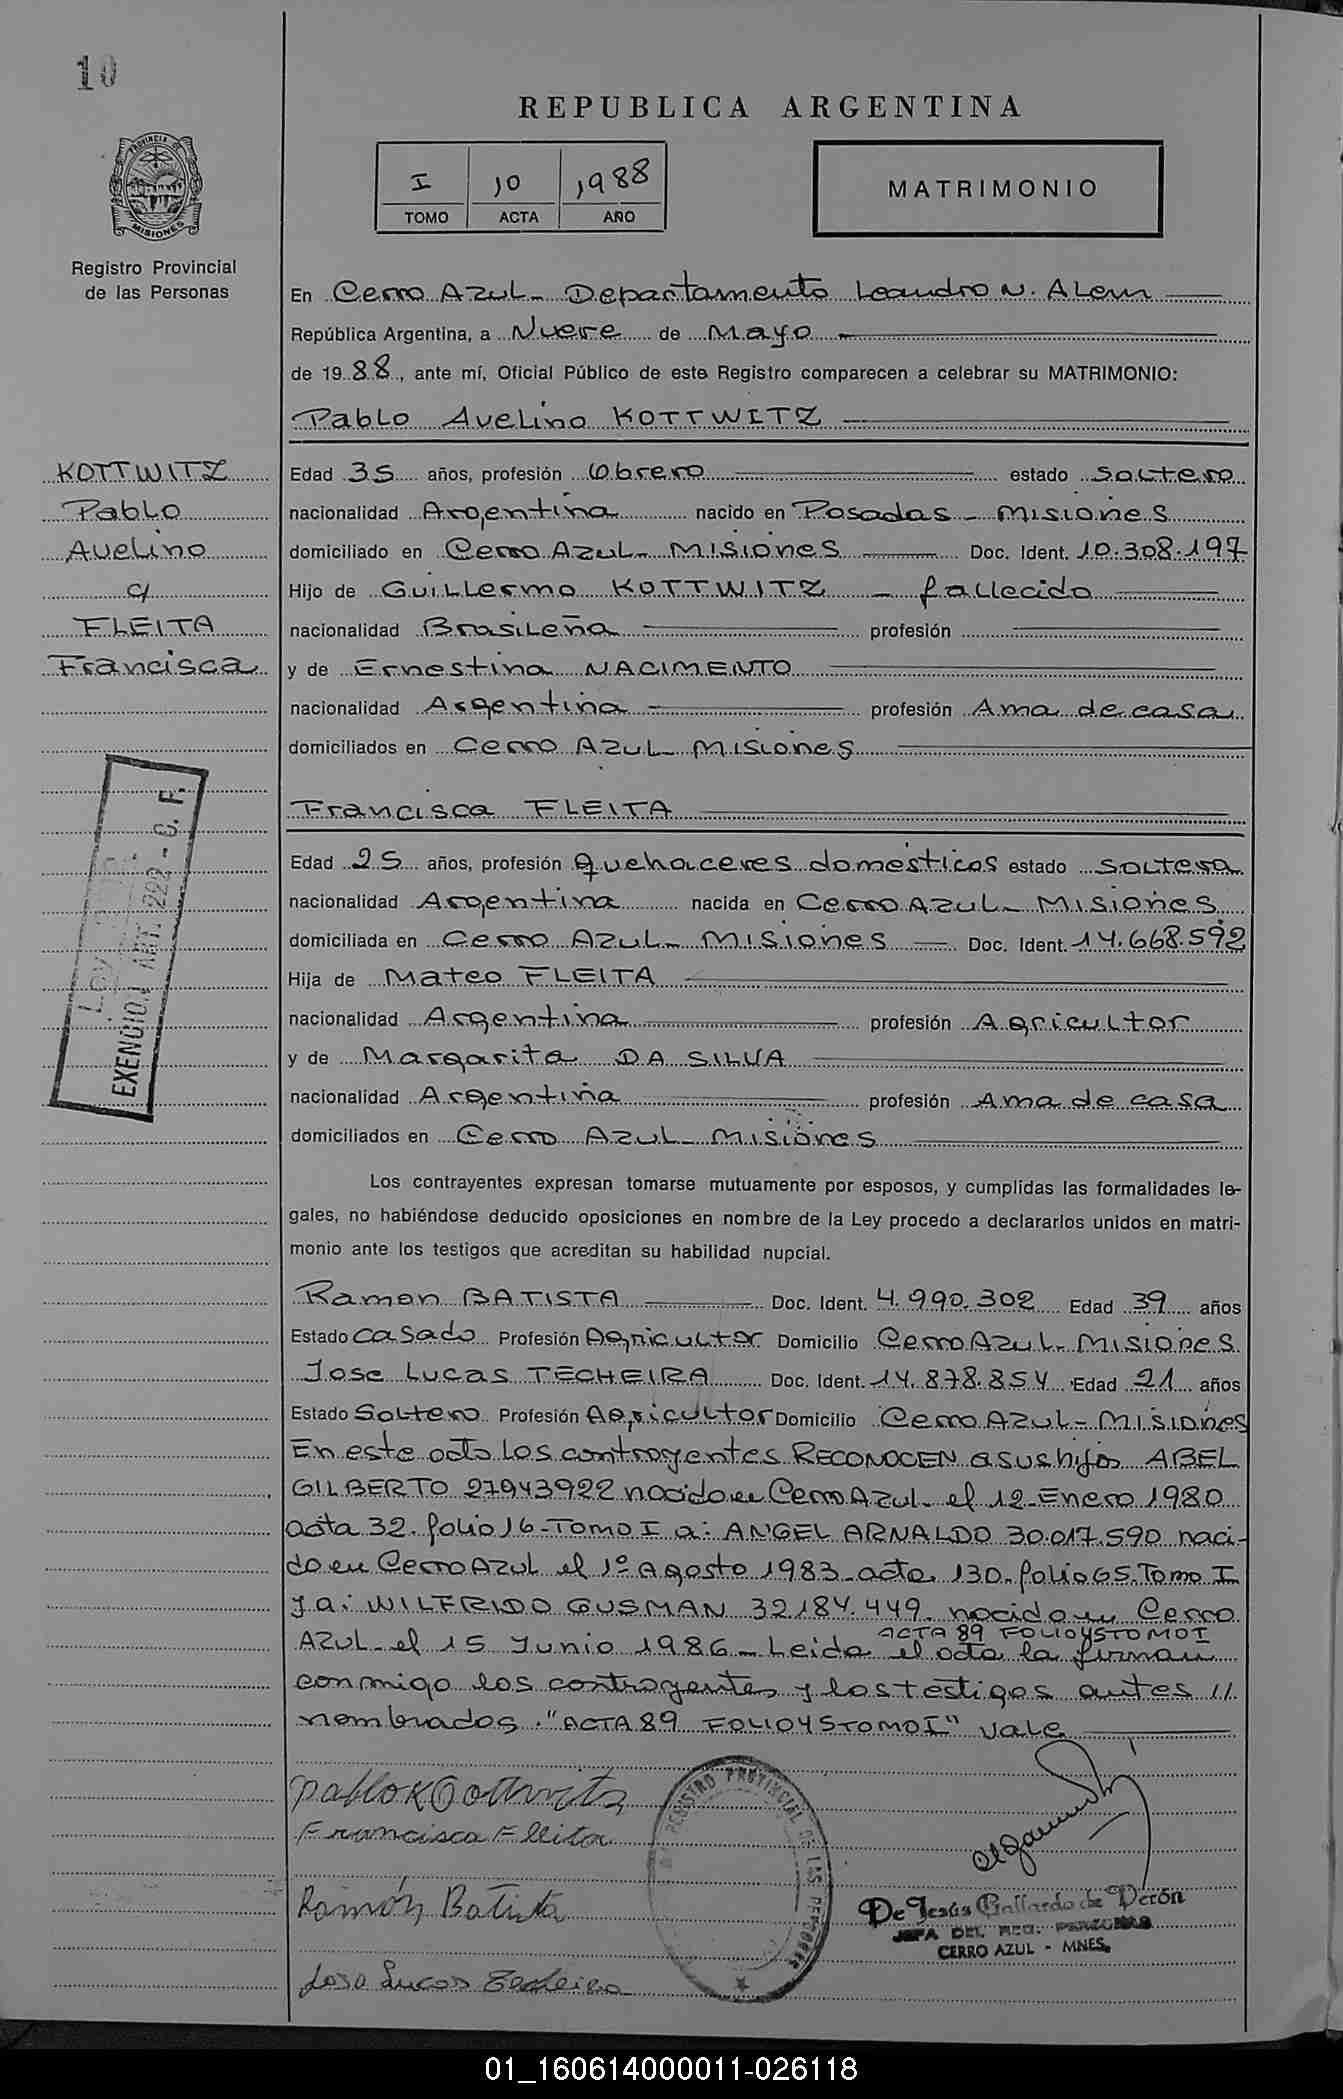 10
REPUBLICA ARGENTINA
I 10 1988
TOMO ACTA AÑO
MATRIMONIO
PROVINCIA DE
MISIONES
Registro Provincial
de las Personas
En Cerro Azul - Departamento Leandro N. Alem
República Argentina, a Nueve de Mayo
de 1988, ante mí, Oficial Público de este Registro comparecen a celebrar su MATRIMONIO:
Pablo Avelino KOTTWITZ
KOTTWITZ
Pablo
Avelino
c/
FLEITA
Francisca
Edad 35 años, profesión Obrero estado soltero
nacionalidad Argentina nacido en Posadas - Misiones
domiciliado en Cerro Azul - Misiones Doc. Ident. 10.308.197
Hijo de Guillermo KOTTWITZ - fallecido
nacionalidad Brasileña profesión
y de Ernestina NACIMENTO
nacionalidad Argentina profesión Ama de casa
domiciliados en Cerro Azul Misiones
Francisca FLEITA
Edad 25 años, profesión Quehaceres domésticos estado soltera
nacionalidad Argentina nacida en Cerro Azul - Misiones
domiciliada en Cerro Azul - Misiones Doc. Ident. 14.668.592
Hija de Mateo FLEITA
nacionalidad Argentina profesión Agricultor
y de Margarita DA SILVA
nacionalidad Argentina profesión Ama de casa
domiciliados en Cerro Azul - Misiones
Ley
EXENCIO ART. 222 - C. F.
Los contrayentes expresan tomarse mutuamente por esposos, y cumplidas las formalidades le-
gales, no habiéndose deducido oposiciones en nombre de la Ley procedo a declararlos unidos en matri-
monio ante los testigos que acreditan su habilidad nupcial.
Ramon BATISTA Doc. Ident. 4.990.302 Edad 39 años
Estado casado Profesión Agricultor Domicilio Cerro Azul - Misiones
Jose Lucas TECHEIRA Doc. Ident. 14.878.854 Edad 21 años
Estado Soltero Profesión Agricultor Domicilio Cerro Azul - Misiones
En este acto los contrayentes RECONOCEN a sus hijos ABEL
GILBERTO 27943922 nacido en Cerro Azul - el 12 - Enero 1980
acta 32. folio 16 - Tomo I a: ANGEL ARNALDO 30.017.590 naci-
do en Cerro Azul el 1º Agosto 1983 - acta 130 - folio 65. Tomo I
y a: WILFRIDO GUSMAN 32184.449. nacido en Cerro
ACTA 89 FOLIO 45 TOMO I
Azul - el 15 Junio 1986 - Leida el acta la firman
conmigo los contrayentes y los testigos antes //
nombrados. "ACTA 89 FOLIO 45 TOMO I" Vale
Pablo Kottwitz
Francisca Fleita
Ramón Batista
Jose Lucas Techeira
REGISTRO PROVINCIAL DE LAS PERSONAS
De Jesús Gallardo de Verón
JEFA DEL REG. PERSONAS
CERRO AZUL - MNES.
01_160614000011-026118